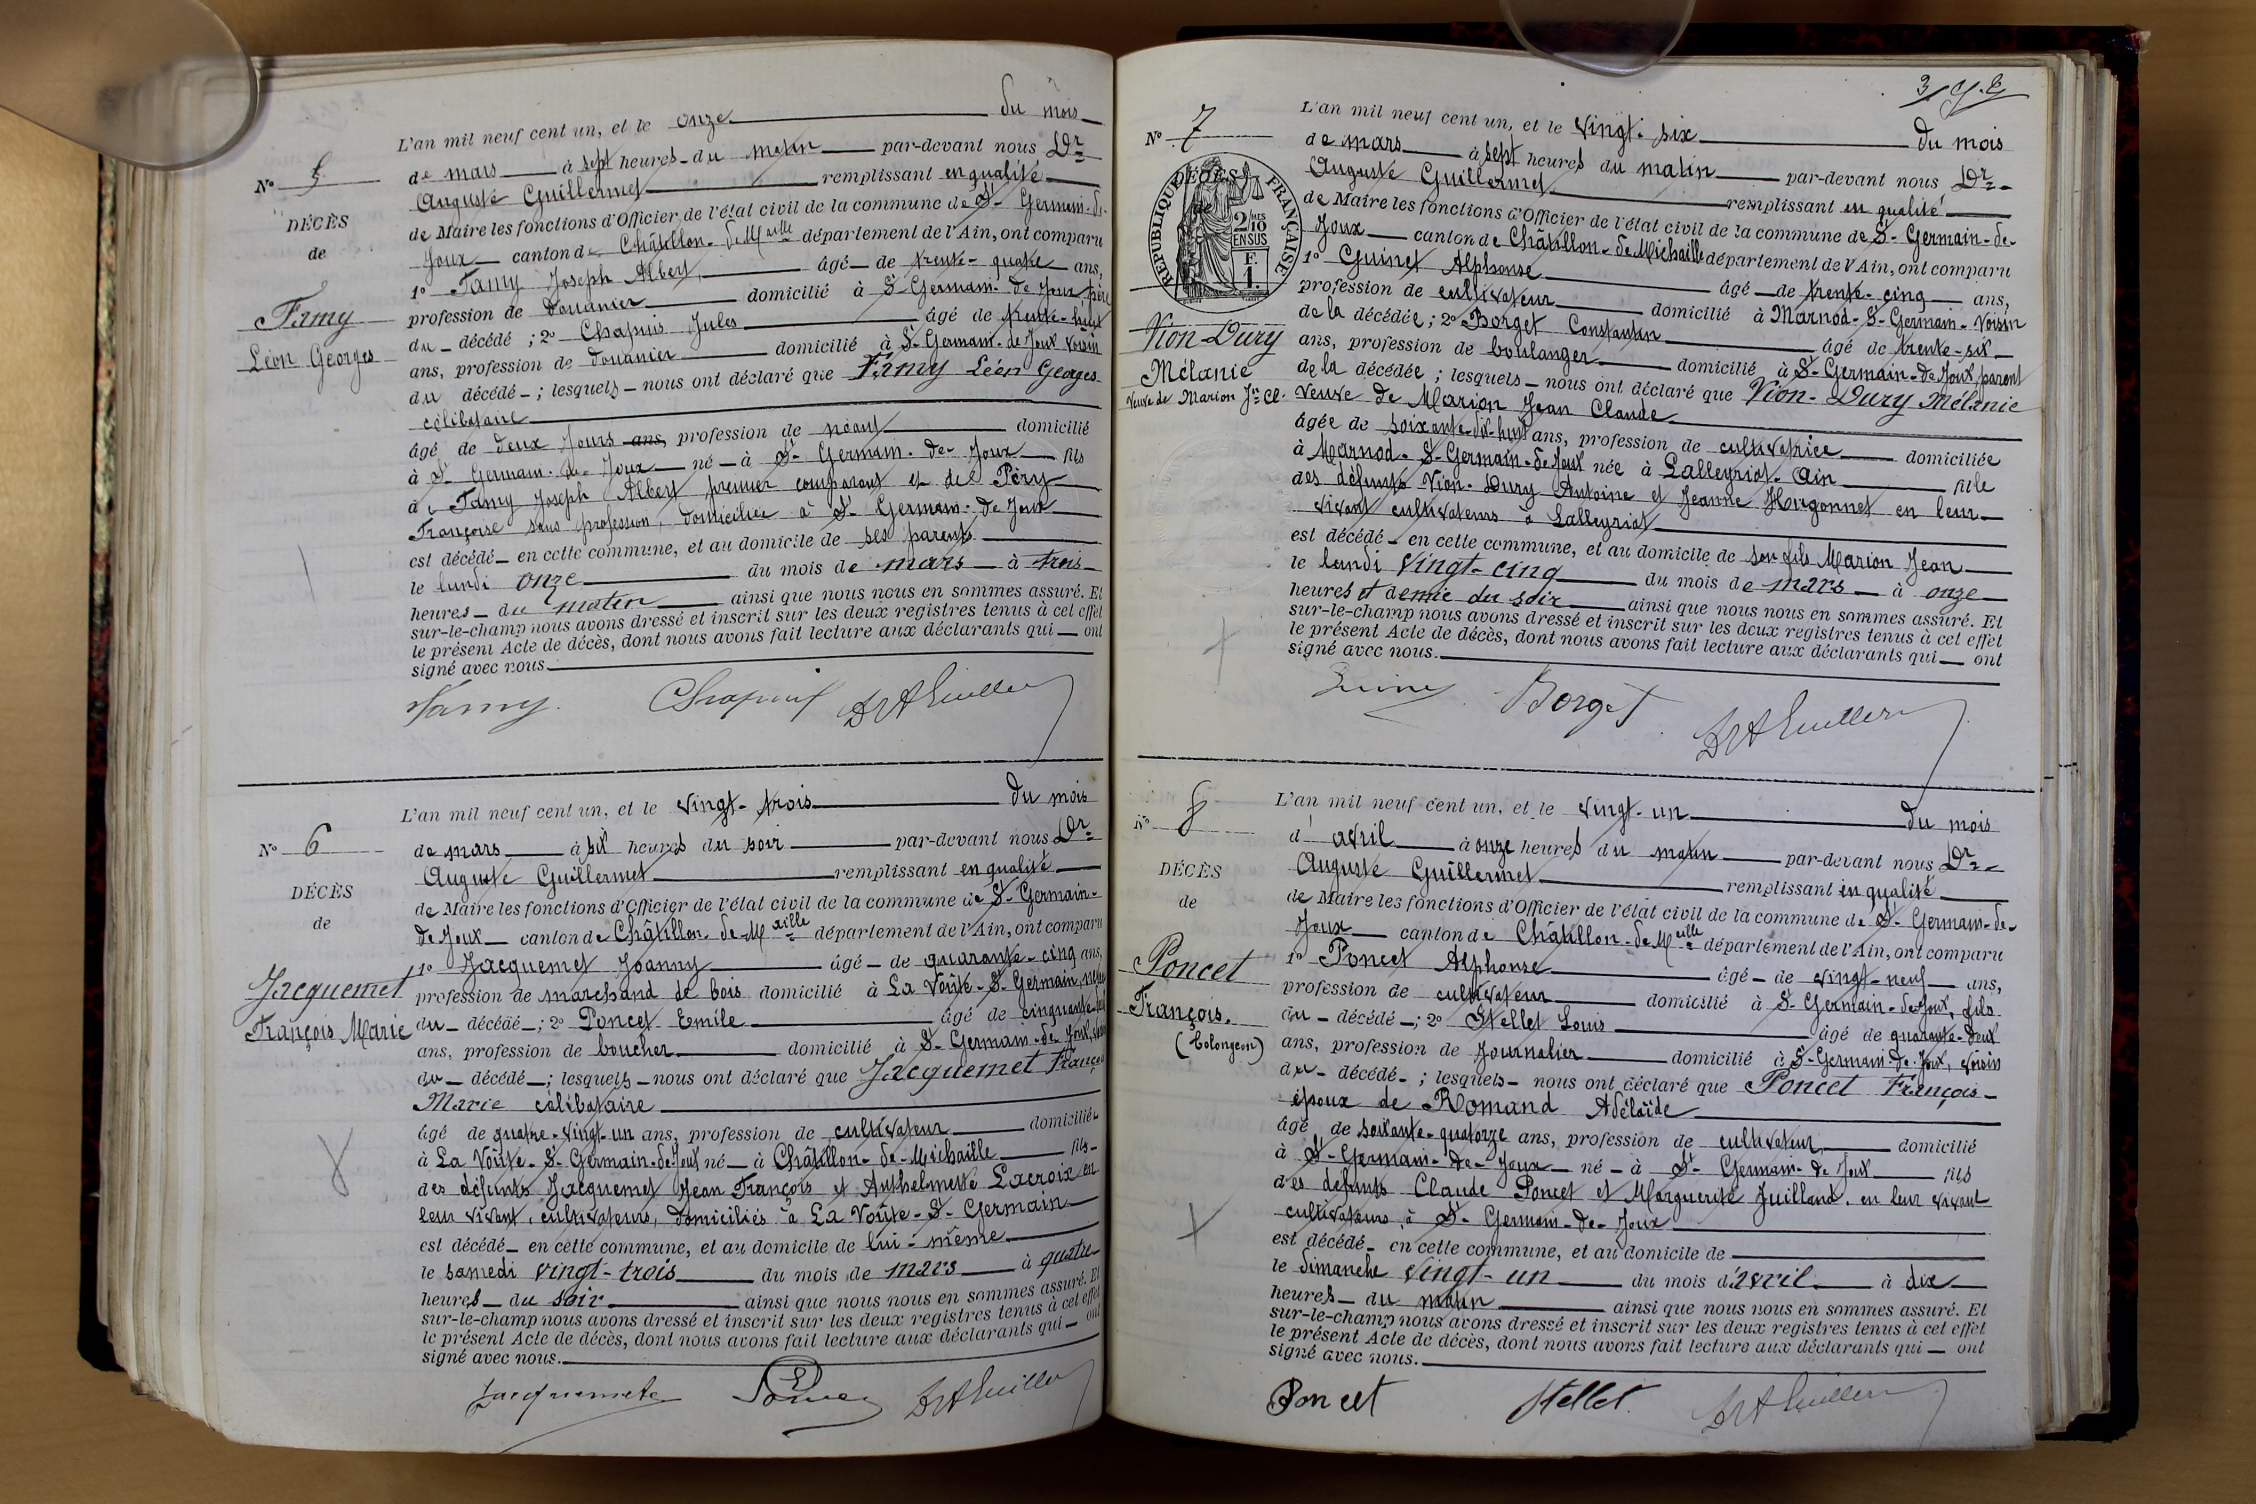 L'an mil neuf cent un, et le onze du mois
de mars à sept heures du matin par-devant nous Dr
Auguste Guillermet remplissant en qualité
de Maire les fonctions d'Officier de l'état civil de la commune de St Germain-de-
Joux canton de Châtillon-de-Maille département de l'Ain, ont comparu
1º Famy Joseph Albert, âgé de trente-quatre ans,
profession de douanier domicilié à St Germain-de Joux, père
du décédé ; 2º Chapuis Jules âgé de trente-huit
ans, profession de douanier domicilié à St Germain-de Joux voisin
du décédé ; lesquels nous ont déclaré que Famy Léon Georges
célibataire
âgé de deux jours ans, profession de néant domicilié
à St Germain-de-Joux né à St Germain-de-Joux fils
de Famy Joseph Albert premier comparant et de Péry
Françoise sans profession, domiciliée à St Germain-de Joux
est décédé en cette commune, et au domicile de ses parents
le lundi onze du mois de mars à trois
heures du matin ainsi que nous nous en sommes assuré. Et
sur-le-champ nous avons dressé et inscrit sur les deux registres tenus à cet effet
le présent Acte de décès, dont nous avons fait lecture aux déclarants qui ont
signé avec nous.
Famy Chapuis Dr A Guiller
Nº 5
DÉCÈS
de
Famy
Léon Georges
L'an mil neuf cent un, et le vingt-trois du mois
de mars à six heures du soir par-devant nous Dr
Auguste Guillermet remplissant en qualité
de Maire les fonctions d'Officier de l'état civil de la commune de St Germain-
de Joux canton de Châtillon-de-Maille département de l'Ain, ont comparu
1º Jacquemet Joanny âgé de quarante-cinq ans,
profession de marchand de bois domicilié à La Voûte-St Germain, neveu
du décédé ; 2º Poncet Emile âgé de cinquante
ans, profession de boucher domicilié à St Germain-de Joux,
du décédé ; lesquels nous ont déclaré que Jacquemet François
Marie célibataire
âgé de quatre-vingt-un ans, profession de cultivateur domicilié
à La Voûte-St Germain-de Joux né à Châtillon-de-Michaille fils
des défunts Jacquemet Jean François et Anthelmette Lacroix en
leur vivant, cultivateurs, domiciliés à La Voûte-St Germain
est décédé en cette commune, et au domicile de lui-même
le samedi vingt-trois du mois de mars à quatre
heures du soir ainsi que nous nous en sommes assuré. Et
sur-le-champ nous avons dressé et inscrit sur les deux registres tenus à cet effet
le présent Acte de décès, dont nous avons fait lecture aux déclarants qui ont
signé avec nous.
Jacquemet Dr A Guiller
Nº 6
DÉCÈS
de
Jacquemet
François Marie
L'an mil neuf cent un, et le vingt-six du mois
de mars à sept heures du matin par-devant nous Dr
Auguste Guillermet remplissant en qualité
de Maire les fonctions d'Officier de l'état civil de la commune de St Germain-de-
Joux canton de Châtillon-de Michaille département de l'Ain, ont comparu
1º Guinet Alphonse âgé de trente-cinq ans,
profession de cultivateur domicilié à Marnod-St Germain-voisin
de la décédée ; 2º Borget Constantin âgé de trente-six
ans, profession de boulanger domicilié à St Germain-de Joux, parent
de la décédée ; lesquels nous ont déclaré que Vion-Dury Mélanie
veuve de Marion Jean Claude
âgée de soixante-dix-huit ans, profession de cultivatrice domiciliée
à Marnod-St Germain-de Joux née à Lalleyriat-Ain fille
des défunts Vion-Dury Antoine et Jeanne Hugonnet en leur
vivant cultivateurs à Lalleyriat
est décédé en cette commune, et au domicile de son fils Marion Jean
le lundi vingt-cinq du mois de mars à onze
heures et demie du soir ainsi que nous nous en sommes assuré. Et
sur-le-champ nous avons dressé et inscrit sur les deux registres tenus à cet effet
le présent Acte de décès, dont nous avons fait lecture aux déclarants qui ont
signé avec nous.
Borget Dr A Guiller
Nº 7
DÉCÈS
de
RÉPUBLIQUE FRANÇAISE
2/10
EN SUS
F.
1.
Vion-Dury
Mélanie
Veuve de Marion Jn Cl.
L'an mil neuf cent un, et le vingt-un du mois
d'avril à onze heures du matin par-devant nous Dr
Auguste Guillermet remplissant en qualité
de Maire les fonctions d'Officier de l'état civil de la commune de St Germain-de-
Joux canton de Châtillon-de Meille département de l'Ain, ont comparu
1º Poncet Alphonse âgé de vingt-neuf ans,
profession de cultivateur domicilié à St Germain-de Joux, fils
du décédé ; 2º Stellet Louis âgé de quarante-deux
ans, profession de journalier domicilié à St Germain-de-Joux, voisin
du décédé ; lesquels nous ont déclaré que Poncet François
époux de Romand Adélaïde
âgé de soixante-quatorze ans, profession de cultivateur domicilié
à St Germain-de-Joux né à St Germain-de Joux fils
des défunts Claude Poncet et Marguerite Juilland, en leur vivant
cultivateurs, à St Germain-de-Joux
est décédé en cette commune, et au domicile de
le dimanche vingt-un du mois d'avril à dix
heures du matin ainsi que nous nous en sommes assuré. Et
sur-le-champ nous avons dressé et inscrit sur les deux registres tenus à cet effet
le présent Acte de décès, dont nous avons fait lecture aux déclarants qui ont
signé avec nous.
Poncet Stellet Dr A Guiller
Nº 8
DÉCÈS
de
Poncet
François.
(Colongeon)